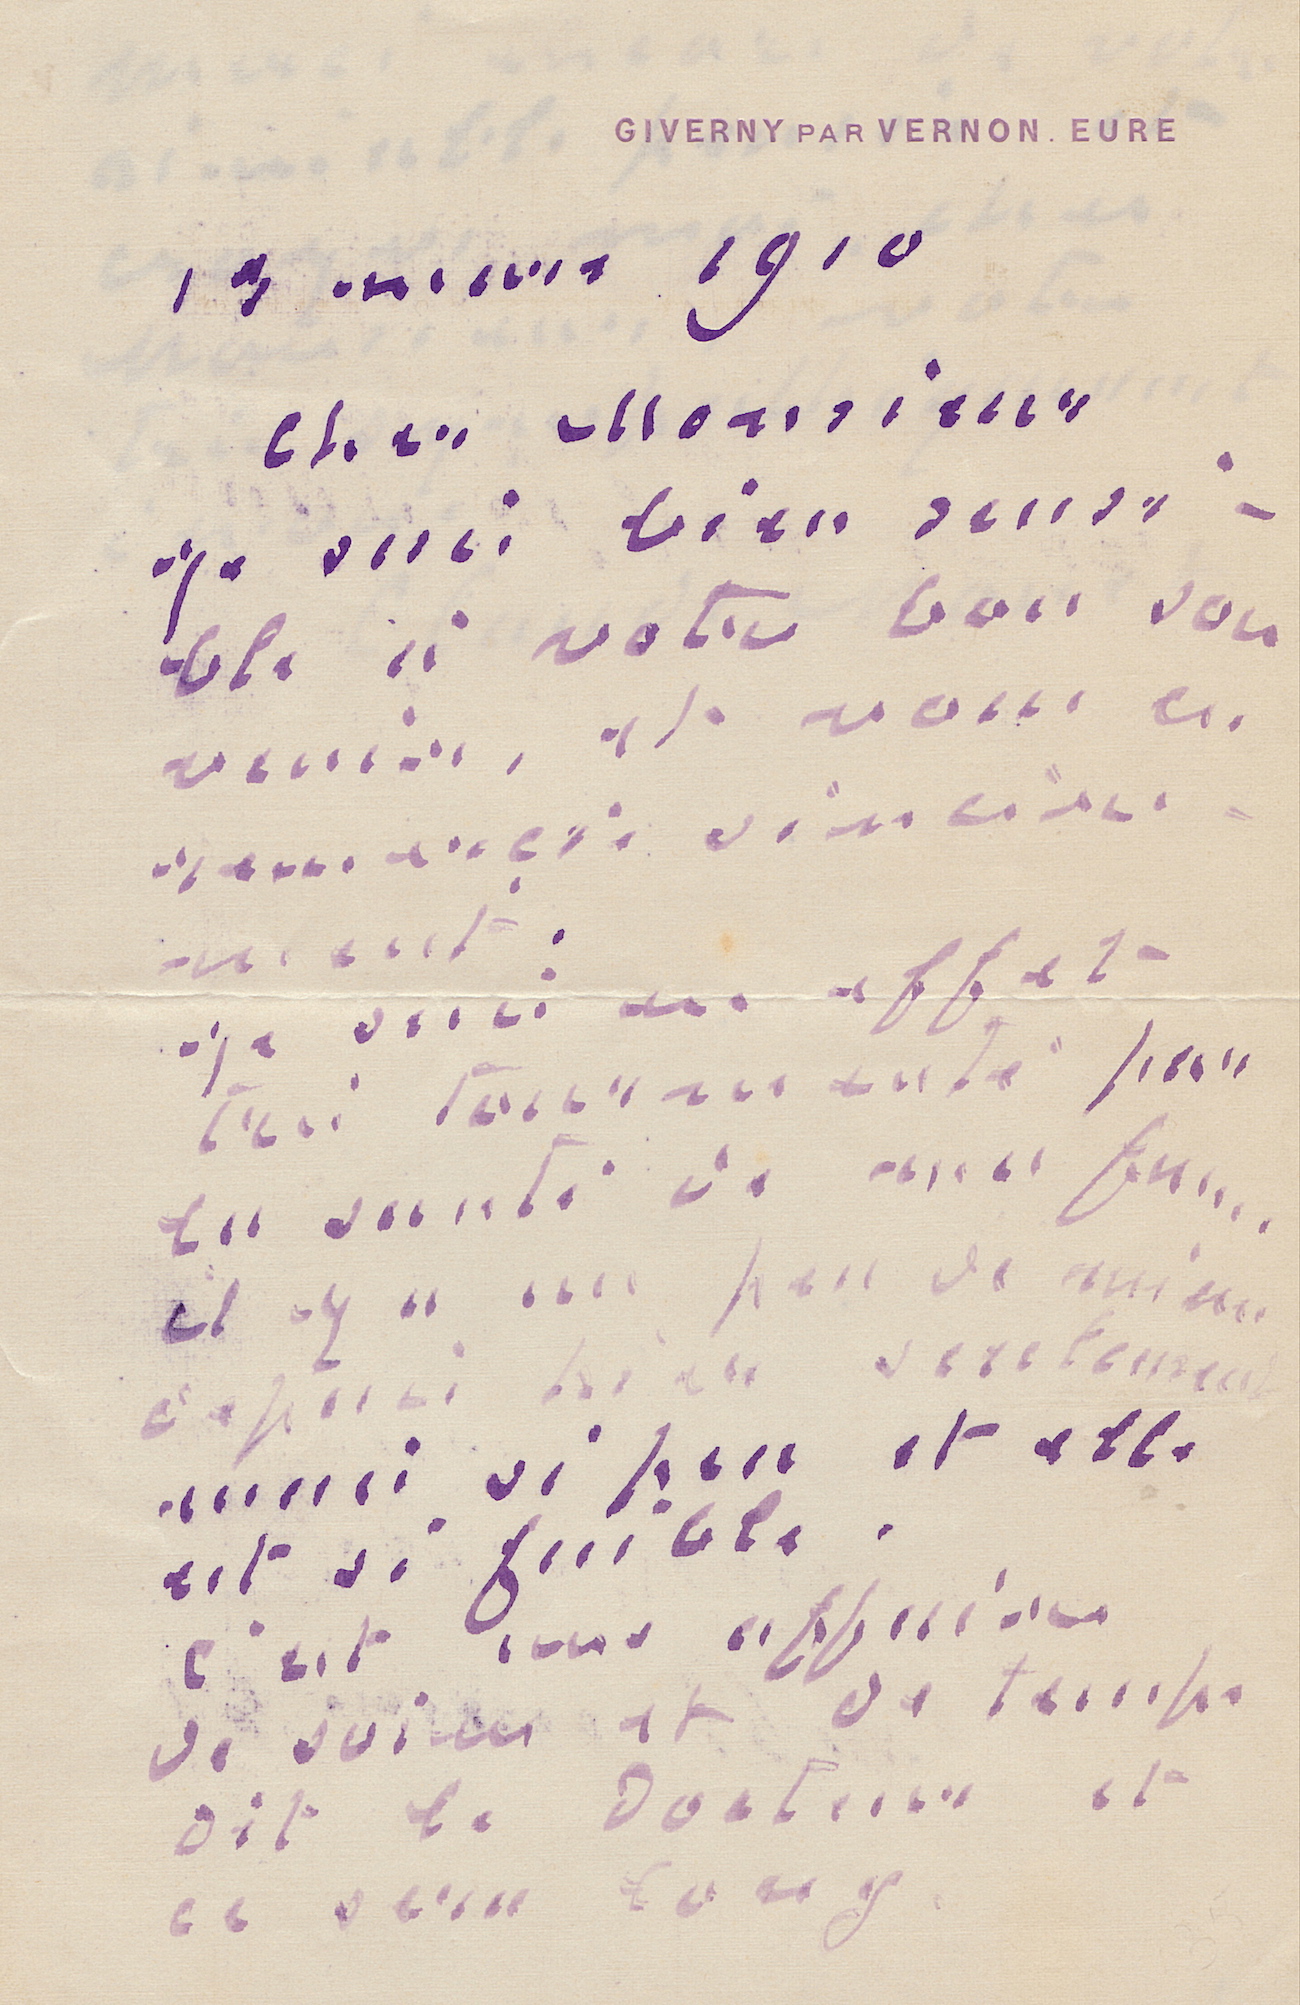 GIVERNY PAR VERNON. EURE
13 mars 1910
Cher Monsieur
je suis bien sensi-
ble à votre bon sou
venir, et vous en
remercie sincère-
ment.
je suis en effet
très tourmenté par
la santé de ma fem.
il y a un peu de mieux
depuis hier seulement
mais si peu et elle
est si faible.
C'est une affaire
de soins et de temps
dit le Docteur et
ce sera long.